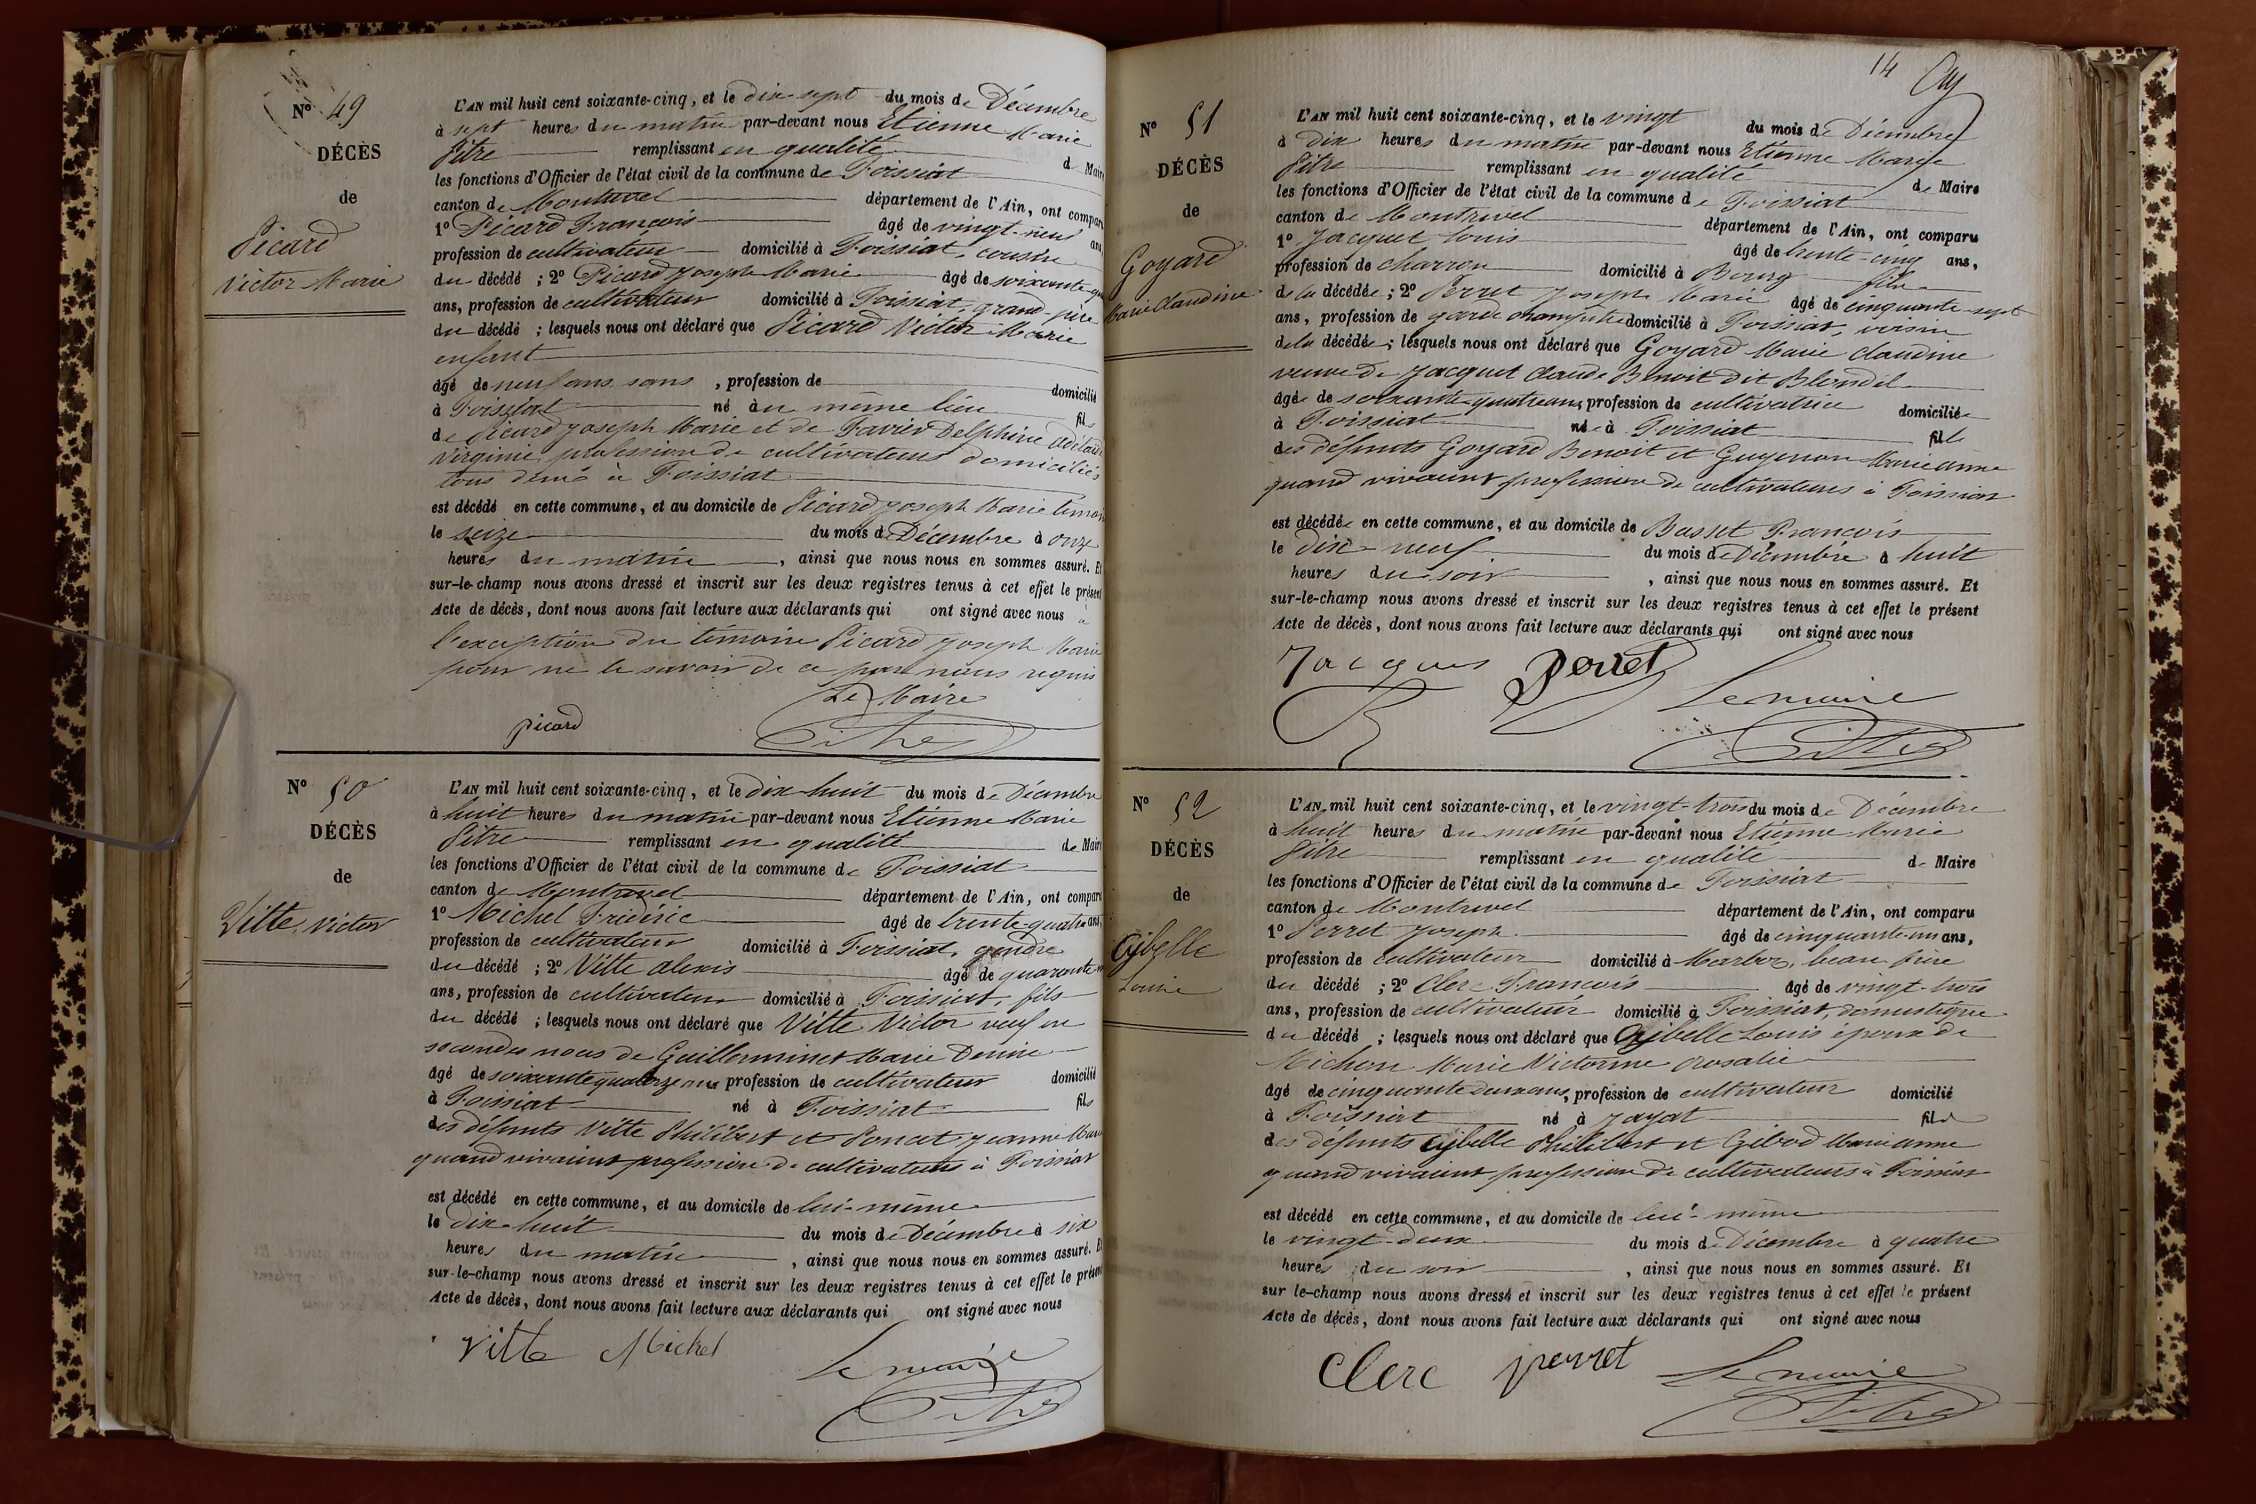 N° 49
DÉCÈS
de
Picard
Victor Marie
L'AN mil huit cent soixante-cinq, et le dix-sept du mois de Décembre
à sept heures du matin par-devant nous Etienne Marie
Pitre remplissant en qualité de Maire
les fonctions d'Officier de l'état civil de la commune de Foissiat
canton de Montrevel département de l'Ain, ont comparu
1° Picard François âgé de vingt-neuf ans
profession de cultivateur domicilié à Foissiat, cousin
du décédé ; 2° Picard Joseph Marie âgé de soixante
ans, profession de cultivateur domicilié à Foissiat, grand-père
du décédé ; lesquels nous ont déclaré que Picard Victor Marie
enfant
âgé de neuf ans sans , profession de domicilié
à Foissiat né au même lieu fils
de Picard Joseph Marie et de Favier Delphine Adélaïde
Virginie profession de cultivateurs domiciliés
tous deux à Foissiat
est décédé en cette commune, et au domicile de Picard Joseph Marie témoin
le seize du mois de Décembre à onze
heures du matin , ainsi que nous nous en sommes assuré. Et
sur-le-champ nous avons dressé et inscrit sur les deux registres tenus à cet effet le présent
Acte de décès, dont nous avons fait lecture aux déclarants qui ont signé avec nous à
l'exception du témoin Picard Joseph Marie
pour ne le savoir de ce par nous requis
Le Maire
picard Pitre
N° 50
DÉCÈS
de
Vitte Victor
L'AN mil huit cent soixante-cinq, et le dix-huit du mois de Décembre
à huit heures du matin par-devant nous Etienne Marie
Pitre remplissant en qualité de Maire
les fonctions d'Officier de l'état civil de la commune de Foissiat
canton de Montrevel département de l'Ain, ont comparu
1° Michel Fridéric âgé de trente-quatre ans,
profession de cultivateur domicilié à Foissiat, gendre
du décédé ; 2° Vitte Alexis âgé de quarante
ans, profession de cultivateur domicilié à Foissiat, fils
du décédé ; lesquels nous ont déclaré que Vitte Victor veuf en
secondes noces de Guillerminet Marie Denise
âgé de soixante quatorze ans profession de cultivateur domicilié
à Foissiat né à Foissiat fils
des défunts Vitte Philibert et Poncet Jeanne Marie
quand vivaient profession de cultivateurs à Foissiat
est décédé en cette commune, et au domicile de lui-même
le dix-huit du mois de Décembre à six
heures du matin , ainsi que nous nous en sommes assuré. Et
sur-le-champ nous avons dressé et inscrit sur les deux registres tenus à cet effet le présent
Acte de décès, dont nous avons fait lecture aux déclarants qui ont signé avec nous
Vitte Michel Le maire
Pitre
14
N° 51
DÉCÈS
de
Goyard
Marie Claudine
L'AN mil huit cent soixante-cinq, et le vingt du mois de Décembre
à dix heures du matin par-devant nous Etienne Marie
Pitre remplissant en qualité de Maire
les fonctions d'Officier de l'état civil de la commune de Foissiat
canton de Montrevel département de l'Ain, ont comparu
1° Jacquet Louis âgé de trente-cinq ans,
profession de charron domicilié à Bourg fils
de la décédée ; 2° Perret Joseph Marie âgé de cinquante-sept
ans, profession de garde champêtre domicilié à Foissiat, voisin
de la décédée ; lesquels nous ont déclaré que Goyard Marie Claudine
veuve de Jacquet Claude Benoit dit Blondel
âgée de soixante-quatre ans, profession de cultivatrice domiciliée
à Foissiat née à Foissiat fille
des défunts Goyard Benoit et Guyenon Marie Anne
quand vivaient profession de cultivateurs à Foissiat
est décédée en cette commune, et au domicile de Basset François
le dix-neuf du mois de Décembre à huit
heures du soir , ainsi que nous nous en sommes assuré. Et
sur-le-champ nous avons dressé et inscrit sur les deux registres tenus à cet effet le présent
Acte de décès, dont nous avons fait lecture aux déclarants qui ont signé avec nous
Jacques perret Le maire
Pitre
N° 52
DÉCÈS
de
Gibelle
Louis
L'AN mil huit cent soixante-cinq, et le vingt-trois du mois de Décembre
à huit heures du matin par-devant nous Etienne Marie
Pitre remplissant en qualité de Maire
les fonctions d'Officier de l'état civil de la commune de Foissiat
canton de Montrevel département de l'Ain, ont comparu
1° Perret Joseph âgé de cinquante-un ans,
profession de cultivateur domicilié à Marboz, beau frère
du décédé ; 2° Clerc François âgé de vingt-trois
ans, profession de cultivateur domicilié à Foissiat, domestique
du décédé ; lesquels nous ont déclaré que Gibelle Louis époux de
Michon Marie Victorine Rosalie
âgé de cinquante deux ans, profession de cultivateur domicilié
à Foissiat né à Jayat fils
des défunts Gibelle Philibert et Gibod Marie Anne
quand vivaient profession de cultivateurs à Foissiat
est décédé en cette commune, et au domicile de lui-même
le vingt-deux du mois de Décembre à quatre
heures du soir , ainsi que nous nous en sommes assuré. Et
sur le-champ nous avons dressé et inscrit sur les deux registres tenus à cet effet le présent
Acte de décès, dont nous avons fait lecture aux déclarants qui ont signé avec nous
Clerc perret Le maire
Pitre